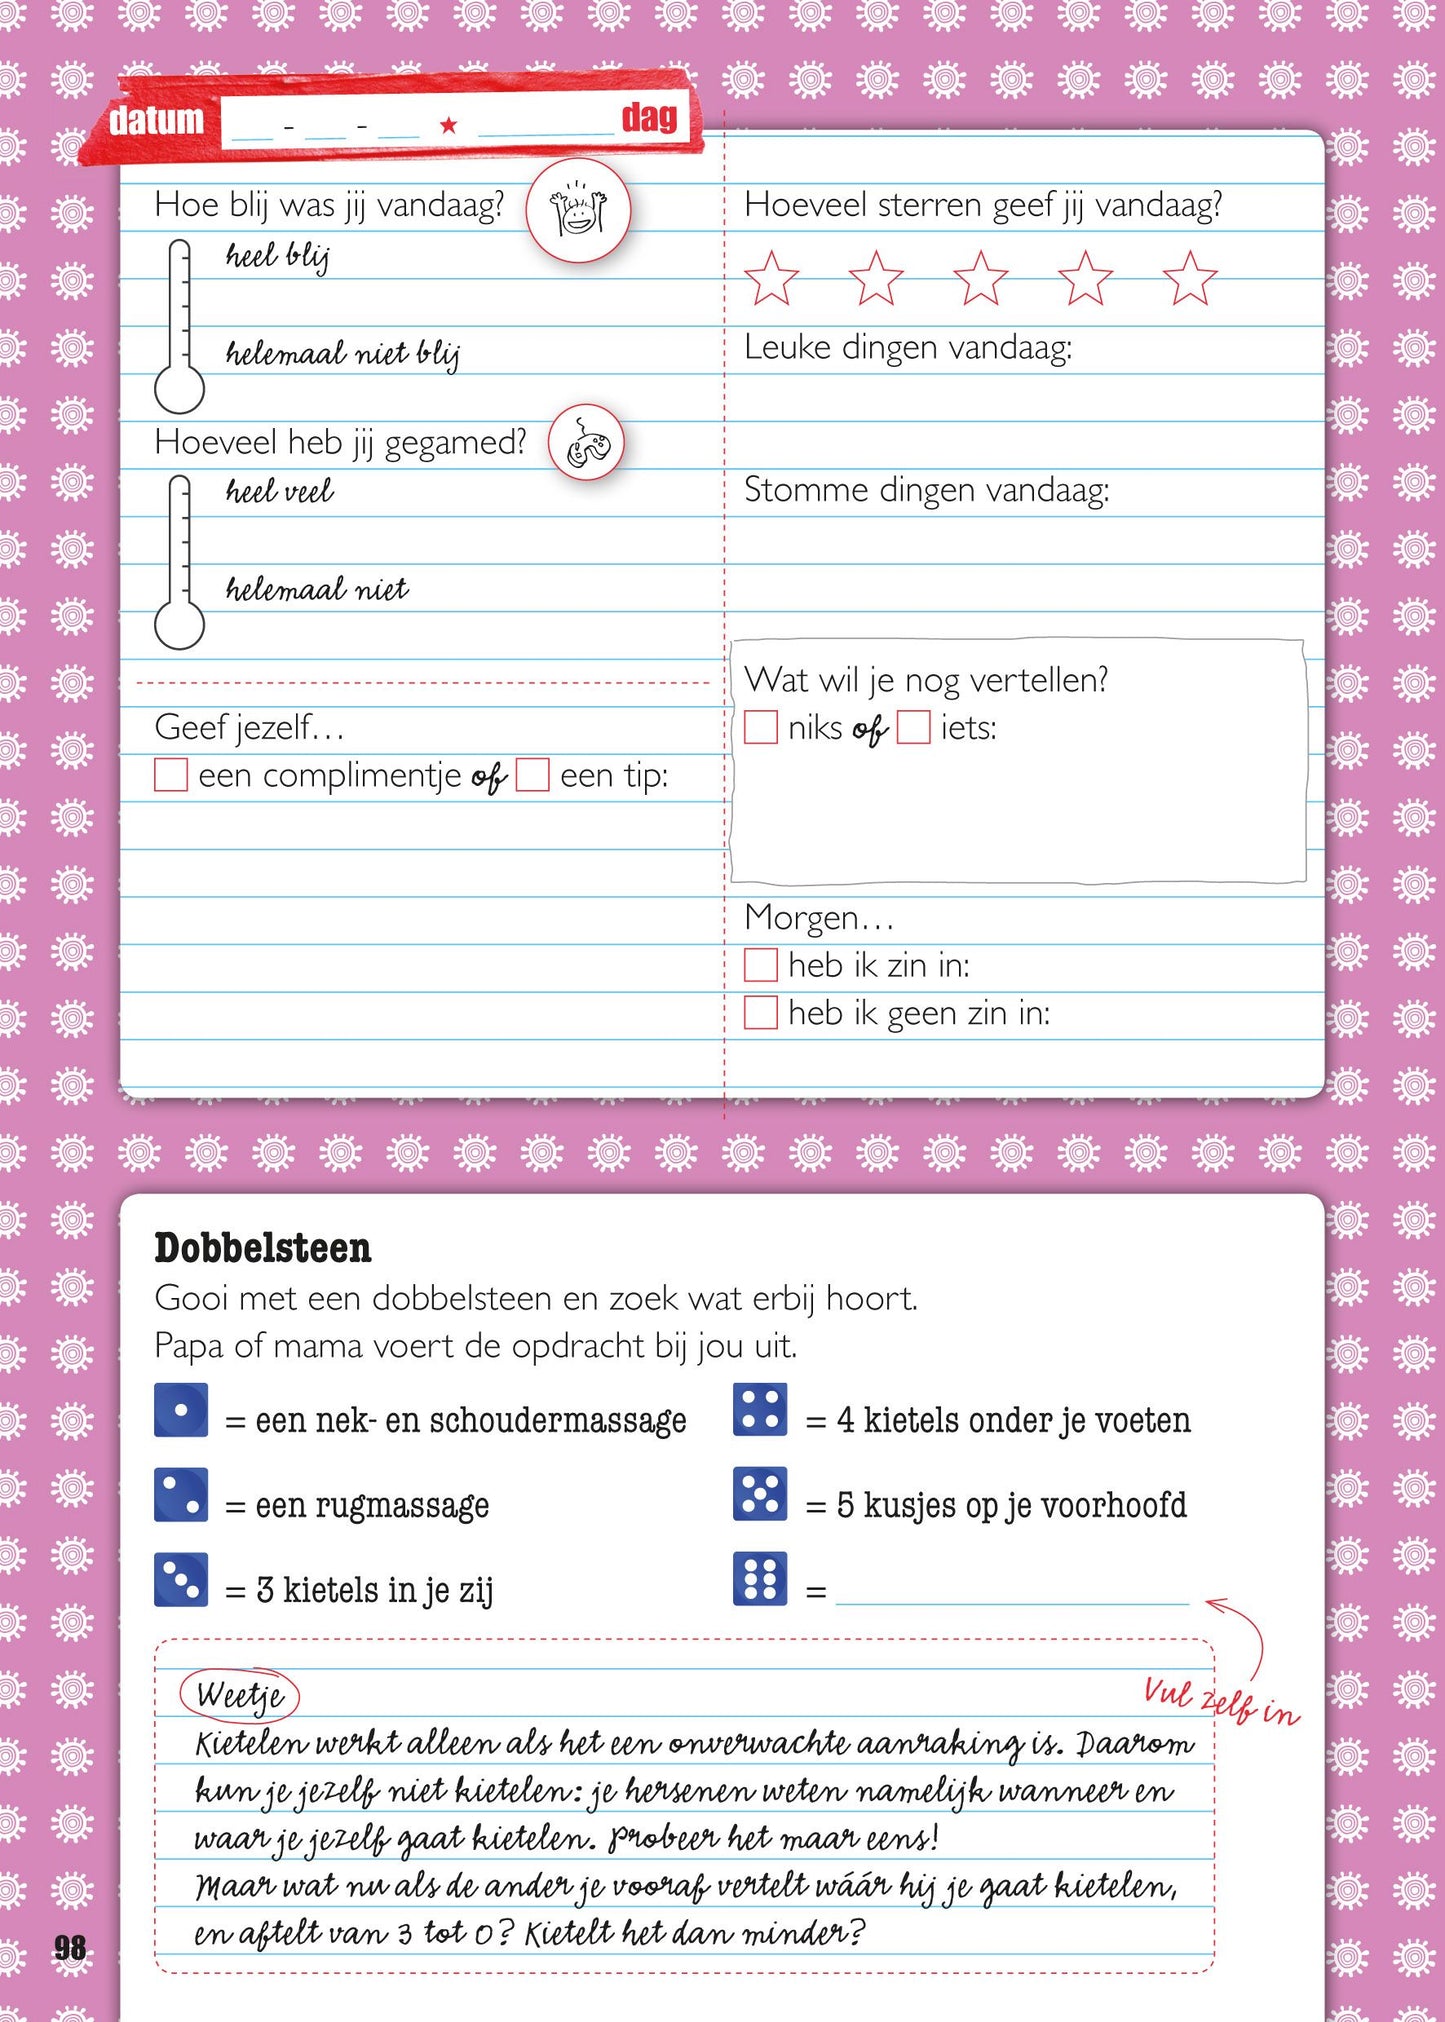 datum __ - __ - __ ★ ______ dag
Hoe blij was jij vandaag?
heel blij
helemaal niet blij
Hoeveel heb jij gegamed?
heel veel
helemaal niet
Geef jezelf…
een complimentje of een tip:
Hoeveel sterren geef jij vandaag?
Leuke dingen vandaag:
Stomme dingen vandaag:
Wat wil je nog vertellen?
niks of iets:
Morgen…
heb ik zin in:
heb ik geen zin in:
Dobbelsteen
Gooi met een dobbelsteen en zoek wat erbij hoort.
Papa of mama voert de opdracht bij jou uit.
= een nek- en schoudermassage
= een rugmassage
= 3 kietels in je zij
= 4 kietels onder je voeten
= 5 kusjes op je voorhoofd
=
Vul zelf in
Weetje
Kietelen werkt alleen als het een onverwachte aanraking is. Daarom
kun je jezelf niet kietelen: je hersenen weten namelijk wanneer en
waar je jezelf gaat kietelen. Probeer het maar eens!
Maar wat nu als de ander je vooraf vertelt wáár hij je gaat kietelen,
en aftelt van 3 tot 0? Kietelt het dan minder?
98